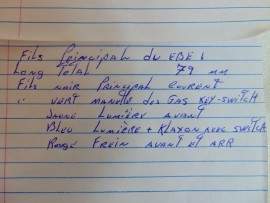 Fils Principal du EBE 6
Long Total 79 mm
Fils noir Principal courent
" vert manette des Gas Key-Switch
Jaune Lumière avant
Bleu Lumière + Klaxon avec switch
Rouge Frein avant et arr